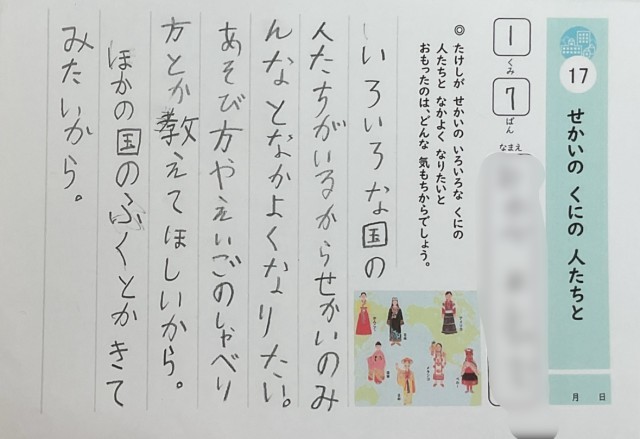 17 せかいの くにの 人たちと
月 日
1
くみ
7
ばん
なまえ
◎ たけしが せかいの いろいろな くにの
人たちと なかよく なりたいと
おもったのは、どんな 気もちからでしょう。
いろいろな国の
人たちがいるからせかいのみ
んなとなかよくなりたい。
あそび方やえいごのしゃべり
方とか教えてほしいから。
ほかの国のふくとかきて
みたいから。